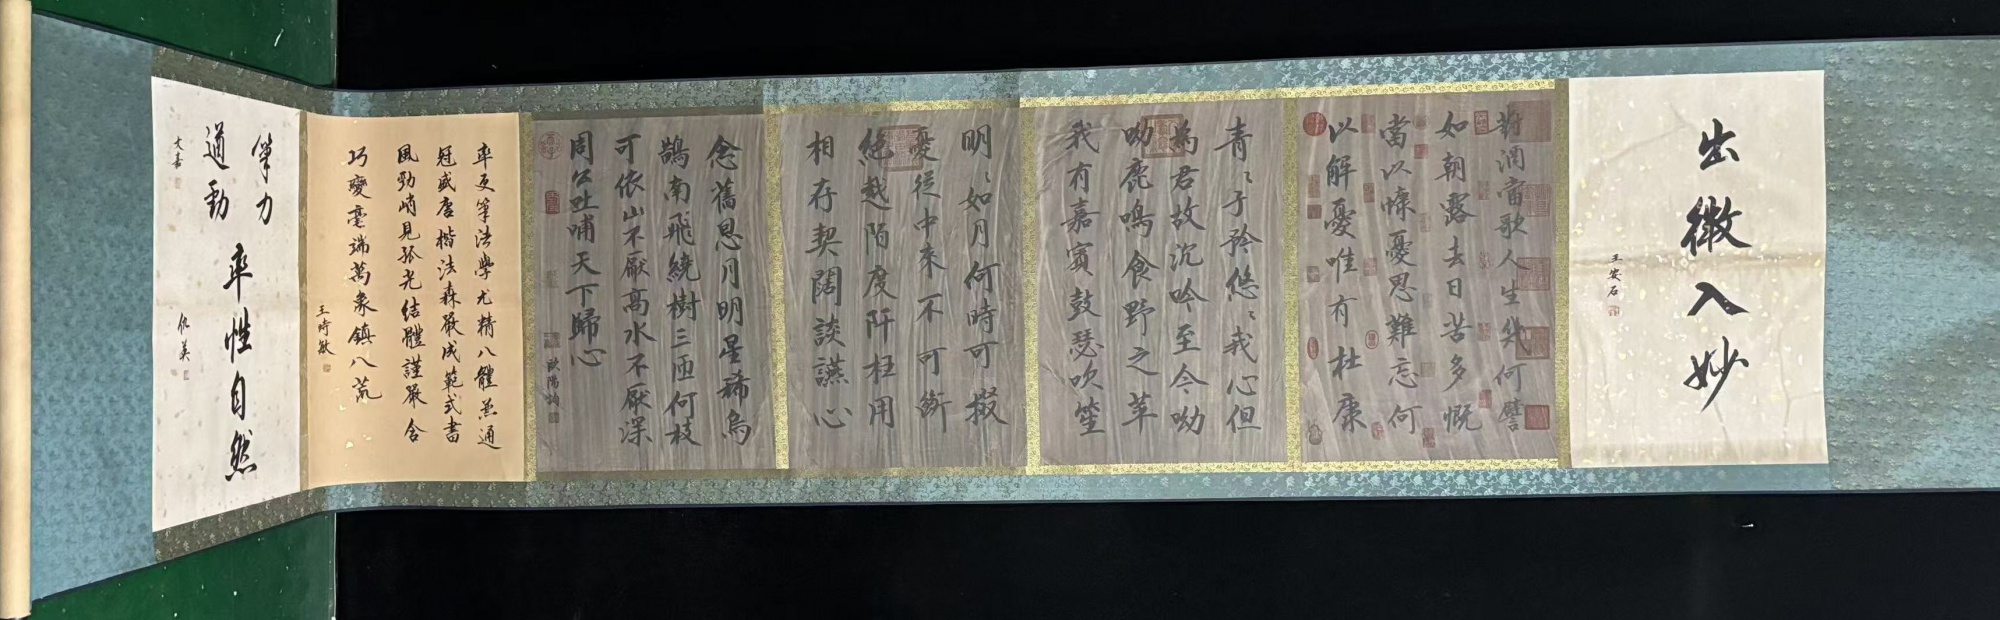 出微入妙
王安石
對酒當歌人生幾何譬
如朝露去日苦多慨
當以慷憂思難忘何
以解憂唯有杜康
青〻子衿悠〻我心但
為君故沉吟至今呦
呦鹿鳴食野之苹
我有嘉賓鼓瑟吹笙
明〻如月何時可掇
憂從中來不可斷
絕越陌度阡枉用
相存契闊談讌心
念舊恩月明星稀烏
鵲南飛繞樹三匝何枝
可依山不厭高水不厭深
周公吐哺天下歸心
歐陽詢
率更筆法學尤精八體並通
冠盛唐楷法森嚴成範式書
風勁峭見孤光結體謹嚴含
巧變毫端萬象鎮八荒
王時敏
筆力
遒動
大嘉
率性自然
仇英